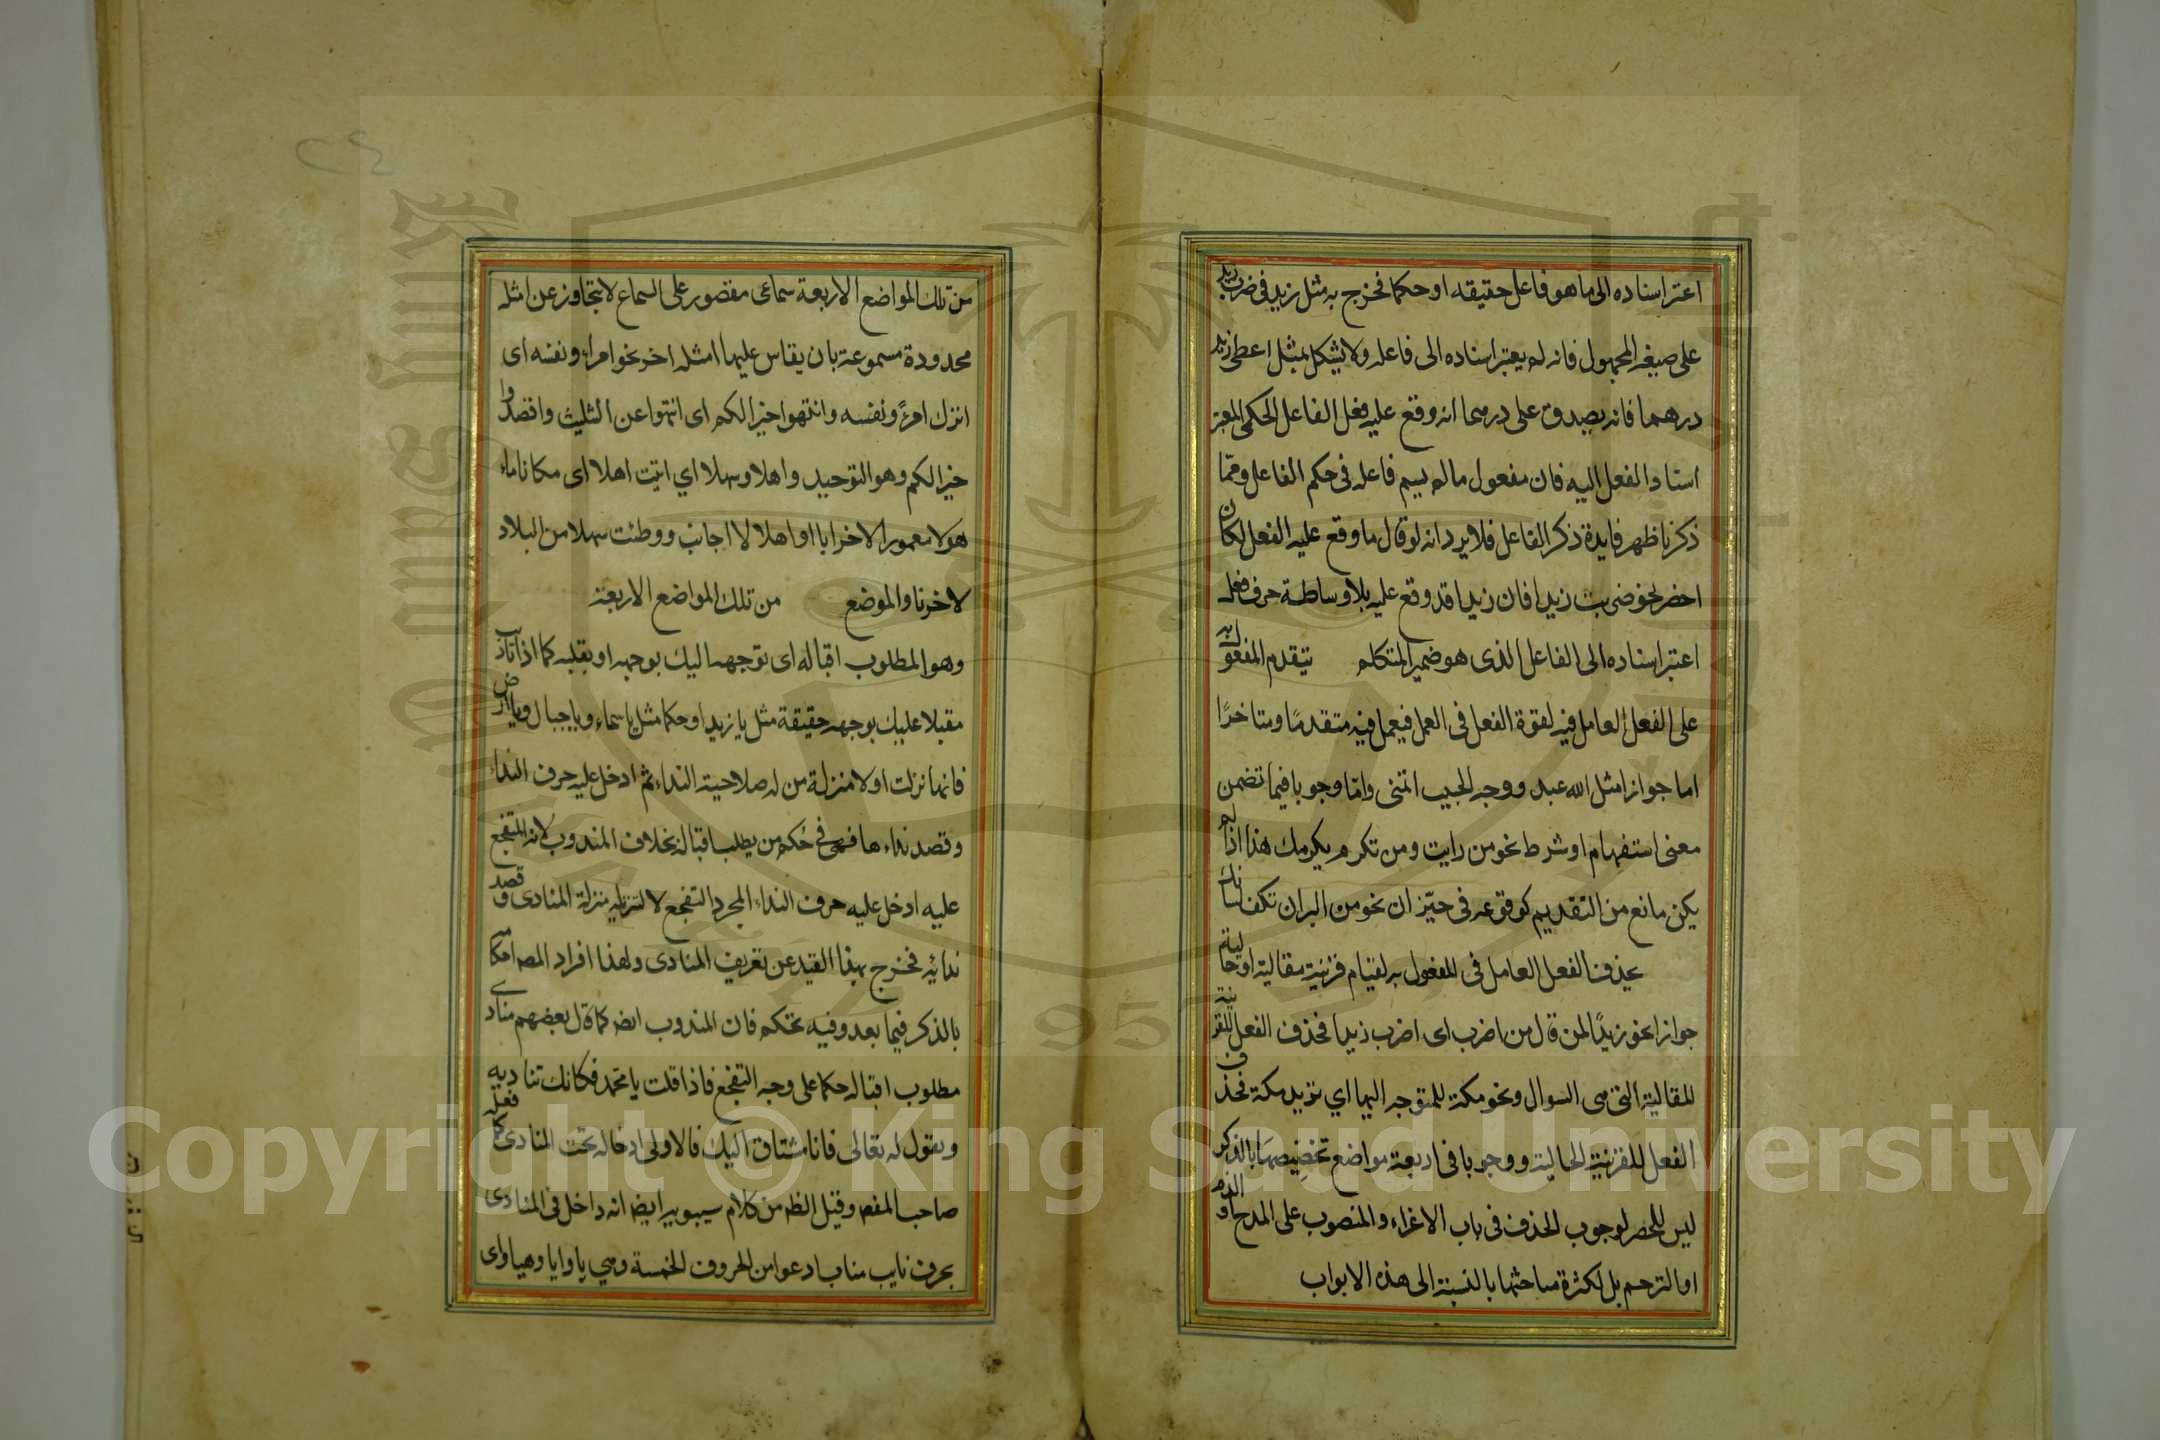 اعتبر اسناده الى ما هو فاعل حقيقه او حكما فخرج به مثل زيد في ضرب زيد
على صيغه المجهول فانه لم يعتبر اسناده الى فاعله ولا يشكل بمثل اعطى زيد
درهما فانه يصدق على درهما انه وقع عليه فعل الفاعل الحكمى المعتبر
اسناد الفعل اليه فان مفعول ما لم يسم فاعله فى حكم الفاعل ومما
ذكرنا ظهر فايدة ذكر الفاعل فلا يرد انه لو قال ما وقع عليه الفعل لكان
احضر نحو ضربت زيدا فان زيدا قد وقع عليه بلا وساطة حرف فعل
اعتبر اسناده الى الفاعل الذى هو ضمير المتكلم يتقدم المفعول به
على الفعل العامل فيه لقوة الفعل فى العمل فيعمل فيه متقدمًا ومتاخرًا
اما جوازا مثل الله عبد ووجه الحبيب اتمنى واما وجوبا فيما تضمن
معنى استفهام او شرط نحو من رايت ومن تكرم يكرمك هذا اذا لم
يكن مانع من التقديم كوقوعه فى حيّز ان نحو من البر ان تكف لسانك
يحذف الفعل العامل فى المفعول به لقيام قرينة مقالية او حالية
جوازا نحو زيدًا لمن قال من اضرب اى اضرب زيدا فحذف الفعل للقرينة
للمقالية التى هى السوال ونحو مكة للمتوجه اليها اي تريد مكة فحذف
الفعل للقرينة الحالية ووجوبا فى اربعة مواضع تخصيصها بالذكر
ليس للحصر لوجوب الحذف فى باب الاغراء والمنصوب على المدح او الذم
او الترحم بل لكثرة مباحثها بالنسبة الى هذه الابواب
من تلك المواضع الاربعة سماعى مقصور على السماع لا يتجاوز عن امثله
محدودة مسموعة بان يقاس عليها امثله اخر نحو امراء ونفسه اى
اترك امرءً ونفسه وانتهوا خيرا لكم اى انتهوا عن التثليث واقصدوا
خيرا لكم وهو التوحيد واهلا وسهلا اي اتيت اهلا اى مكانا ماء
هولا معمورا لا خرابا او اهلا لا اجانب ووطئت سهلا من البلاد
لا خرنا والموضع من تلك المواضع الاربعة
وهو المطلوب اقباله اى توجهه اليك بوجهه او بقلبه كما اذا ناديت
مقبلا عليك بوجهه حقيقة مثل يا زيد او حكما مثل يا سماء ويا جبال ويا ارض
فانها نزلت اولا منزلة من له صلاحية النداء ثم ادخل عليه حرف النداء
وقصد نداءها فهى فى حكم من يطلب اقباله بخلاف المندوب لانه المتفجع
عليه ادخل عليه حرف النداء المجرد التفجع لا لتنزيله منزلة المنادى وقصد
ندائه فخرج بهذا القيد عن تعريف المنادى ولهذا افراد المص احكامه
بالذكر فيما بعد وفيه تحكم فان المندوب ايضه كما قال بعضهم منادى
مطلوب اقباله حكما على وجه التفجع فاذا قلت يا محمد فكانك تناديه
وتقول له تعالى فانا مشتاق اليك فالاولى ادخاله تحت المنادى كما فعله
صاحب المفصل وقيل الظه من كلام سيبويه ايضه انه داخل فى المنادى
بحرف نايب مناب ادعو من الحروف الخمسة وهي يا وايا وهيا واى
Copyright © King Saud University
1957